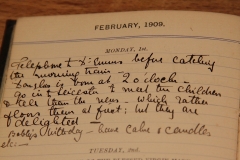 FEBRUARY, 1909.
MONDAY, 1st.
Telephone to Dr. before catching
the morning train.
Douglas by boat at 2 o'clock -
Go in to to meet the children
& tell them the news - which rather
floors them at first; but they are
delighted -
Bobby's birthday - have cake & candles
etc -
TUESDAY, 2nd.